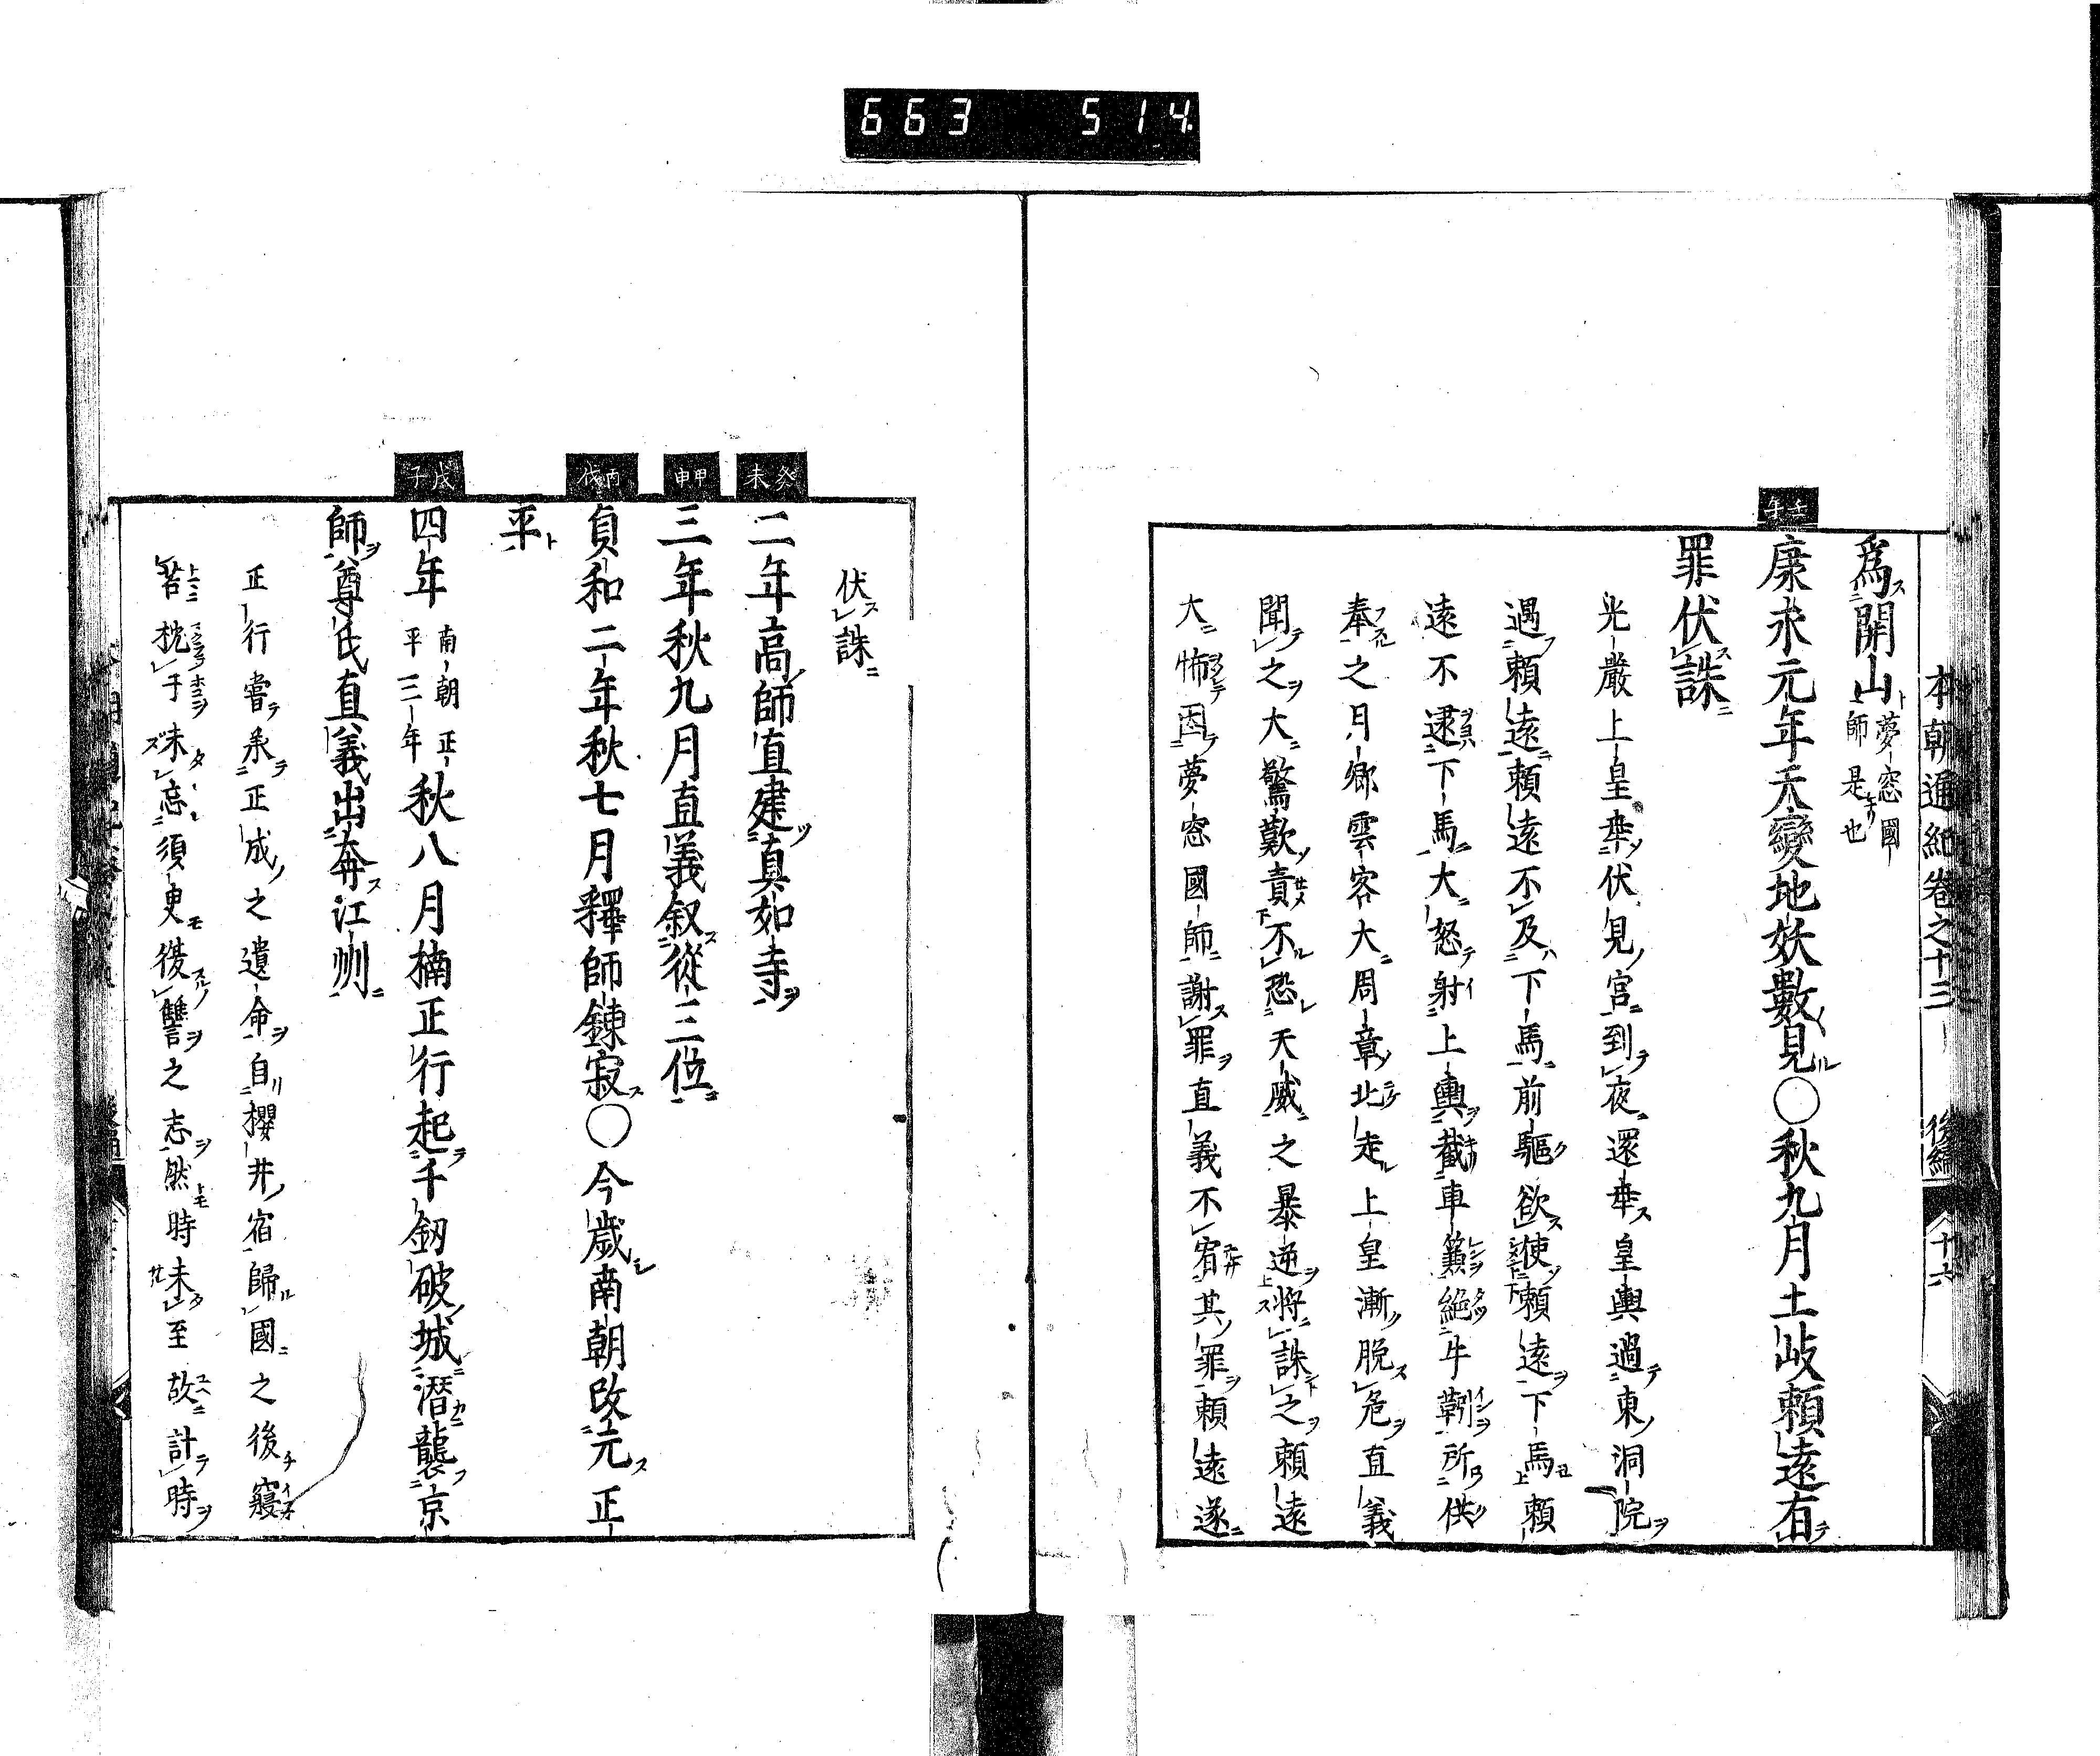 663 514
本朝通紀卷之十三 後編 十六
爲開山夢窓國師是也
壬午
康永元年天變地妖數見〇秋九月土岐頼遠有
罪伏誅
光嚴上皇幸伏見宮到夜還幸皇輿過東洞院
過頼遠頼遠不及下馬前驅欲使頼遠下馬頼
遠不逮下馬大怒射上輿截車簾絶牛靷所供
奉之月卿雲客大周章北走上皇漸脱危直義
聞之大驚歎責不恐天威之暴逆將誅之頼遠
大怖因夢窓國師謝罪直義不宥其罪頼遠遂
伏誅
癸未
二年高師直建真如寺
甲申
三年秋九月直義叙從三位
丙戌
貞和二年秋七月釋師錬寂〇今歲南朝改元正
平
戊子
四年南朝正平三年秋八月楠正行起千釼破城潜襲京
師尊氏直義出奔江州
正行嘗承正成之遺命自櫻井宿歸國之後寢
苫枕于未忘須臾復讐之志然時未至故計時